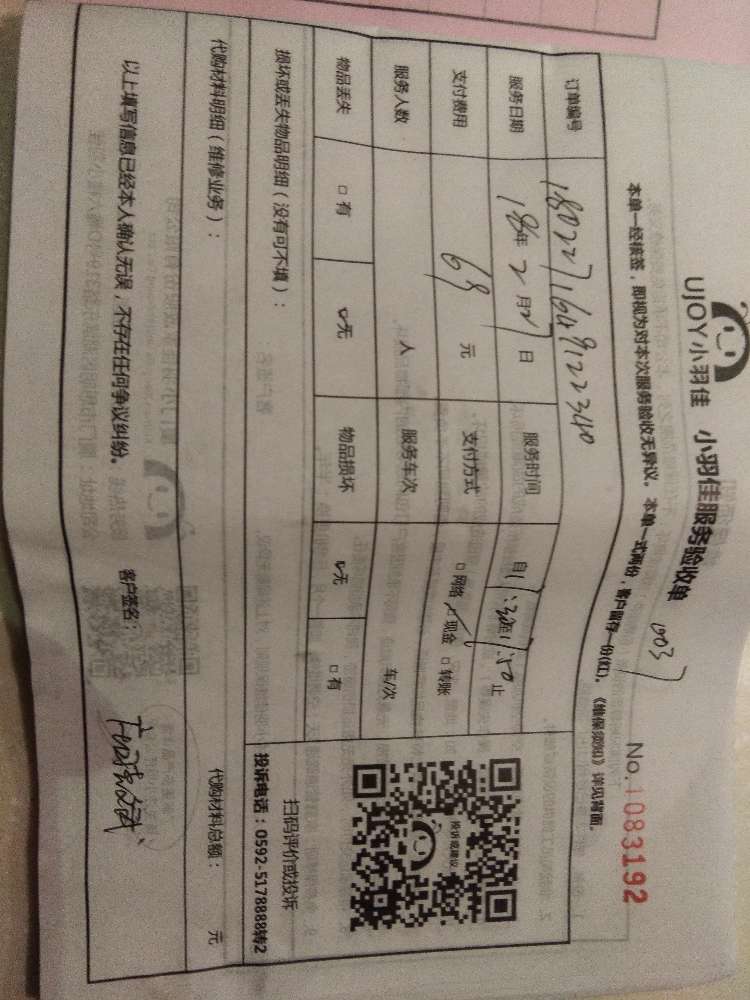 UJOY小羽佳 小羽佳服务验收单
No.1083192
本单一经核签，即视为对本次服务验收无异议。本单一式两份，客户留存一份(红)。《维保须知》详见背面。
订单编号 1802271649122340
服务日期 18年2月27日 服务时间 自 至 :50止
支付费用 69元 支付方式 □网络 ☑现金 □转账
服务人数 人 服务车次 车/次
物品丢失 □有 ☑无 物品损坏 ☑无 □有
投诉或建议
扫码评价或投诉
投诉电话：0592-5178888转2
损坏或丢失物品明细（没有可不填）：
代购材料明细（维修业务）： 代购材料总额： 元
以上填写信息已经本人确认无误，不存在任何争议纠纷。 客户签名：